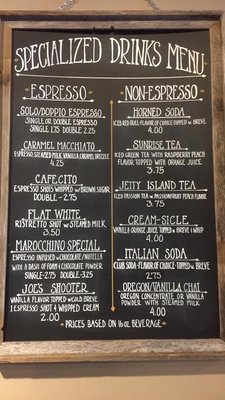 SPECIALIZED DRINKS MENU
ESPRESSO
SOLO/DOPPIO ESPRESSO
SINGLE OR DOUBLE ESPRESSO
SINGLE 1.75 DOUBLE 2.25
CARAMEL MACCHIATO
ESPRESSO, STEAMED MILK, VANILLA, CARAMEL DRIZZLE
4.25
CAFECITO
ESPRESSO SHOTS WHIPPED W/BROWN SUGAR
DOUBLE - 2.75
FLAT WHITE
RISTRETTO SHOT W/STEAMED MILK
3.50
MAROCCHINO SPECIAL
ESPRESSO INFUSED W/CHOCOLATE/NUTELLA
WITH A DASH OF FOAM & CHOCOLATE POWDER
SINGLE-2.75 DOUBLE-3.25
JOE'S SHOOTER
VANILLA FLAVOR TOPPED W/COLD BREVE
1 ESPRESSO SHOT & WHIPPED CREAM
2.00
NON-ESPRESSO
HORNED SODA
ICED RED BULL FLAVOR OF CHOICE-TOPPED W. BREVE
4.00
SUNRISE TEA
ICED GREEN TEA WITH RASPBERRY PEACH
FLAVOR TOPPED WITH ORANGE JUICE
3.75
JETTY ISLAND TEA
ICED PASSION TEA W/PASSIONFRUIT PEACH FLAVOR
3.75
CREAM-SICLE
VANILLA ORANGE JUICE TOPPED W/ BREVE & WHIP
4.00
ITALIAN SODA
CLUB SODA-FLAVOR OF CHOICE-TOPPED W. BREVE
2.75
OREGON/VANILLA CHAI
OREGON CONCENTRATE OR VANILLA
POWDER WITH STEAMED MILK
4.00
*PRICES BASED ON 16 OZ. BEVERAGE